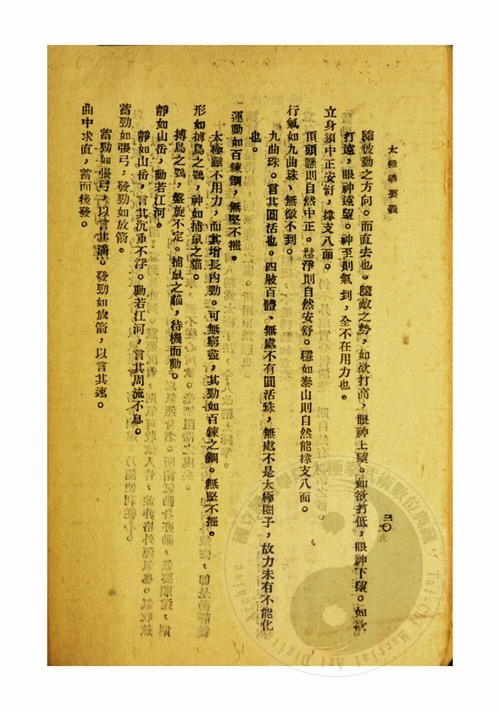 太極拳要義
三〇
隨彼動之方向。而直去也。隨敵之勢，如欲打高，眼神上望。如欲打低，眼神下望。如欲
打遠，眼神遠望。神至則氣到，全不在用力也。
立身須中正安舒，撐支八面。
頂頭懸則自然中正。鬆淨則自然安舒。穩如泰山則自然能撐支八面。
行氣如九曲珠、無微不到。
九曲珠。言其圓活也。四肢百體、無處不有圓活珠，無處不是太極圈子，故力未有不能化
也。
運動如百鍊鋼，無堅不摧。
太極雖不用力，而其增長內勁。可無窮盡，其勁如百鍊之鋼。無堅不摧。
形如搏鳥之鶚，神如捕鼠之貓。
搏鳥之鶚，盤旋不定。捕鼠之貓，待機而動。
靜如山岳，動若江河。
靜如山岳，言其沉重不浮。動若江河，言其周流不息。
蓄勁如張弓，發勁如放箭。
蓄勁如張弓，以言其滿。發勁如放箭，以言其速。
曲中求直，蓄而後發。
Tai-Chi Martial Art Digital Archive